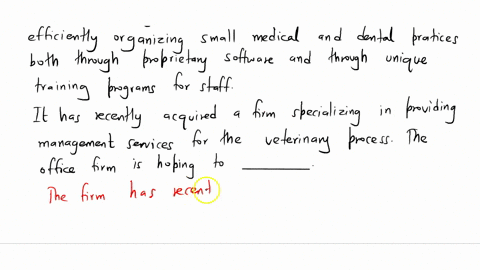 efficiently organizing small medical and dental pratices
both through proprietary software and through unique
training programs for staff.
It has recently acquired a firm specializing in providing
management services for the veterinary process. The
office firm is hoping to __________.
The firm has recent